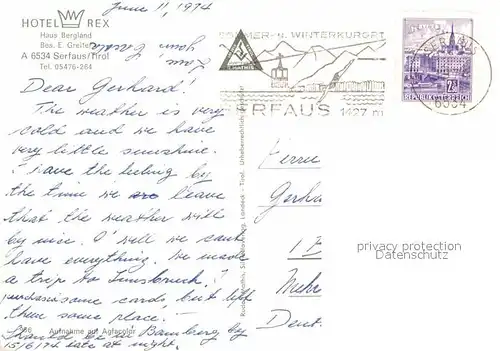 June 11, 1974
HOTEL REX
Haus Bergland
Bes. E. Greiter
A 6534 Serfaus/Tirol
Tel. 05476-264
Dear Gerhard!
The weather is very
cold and we have
very little sunshine.
I have the feeling by
the time we leave
that the weather will
by nice. I well we cant
have everything. We made
a trip to Innsbruck. I
purchasing some cards, but left
them some place.
Should be in Bamberg by
15/6/74 late at night.
Love, Your
Aufnahme auf Agfacolor
SOMMER- u. WINTERKURORT
SERFAUS 1427 m
REPUBLIK ÖSTERREICH
Herrn
Gerha
1
Deut.
privacy protection
Datenschutz